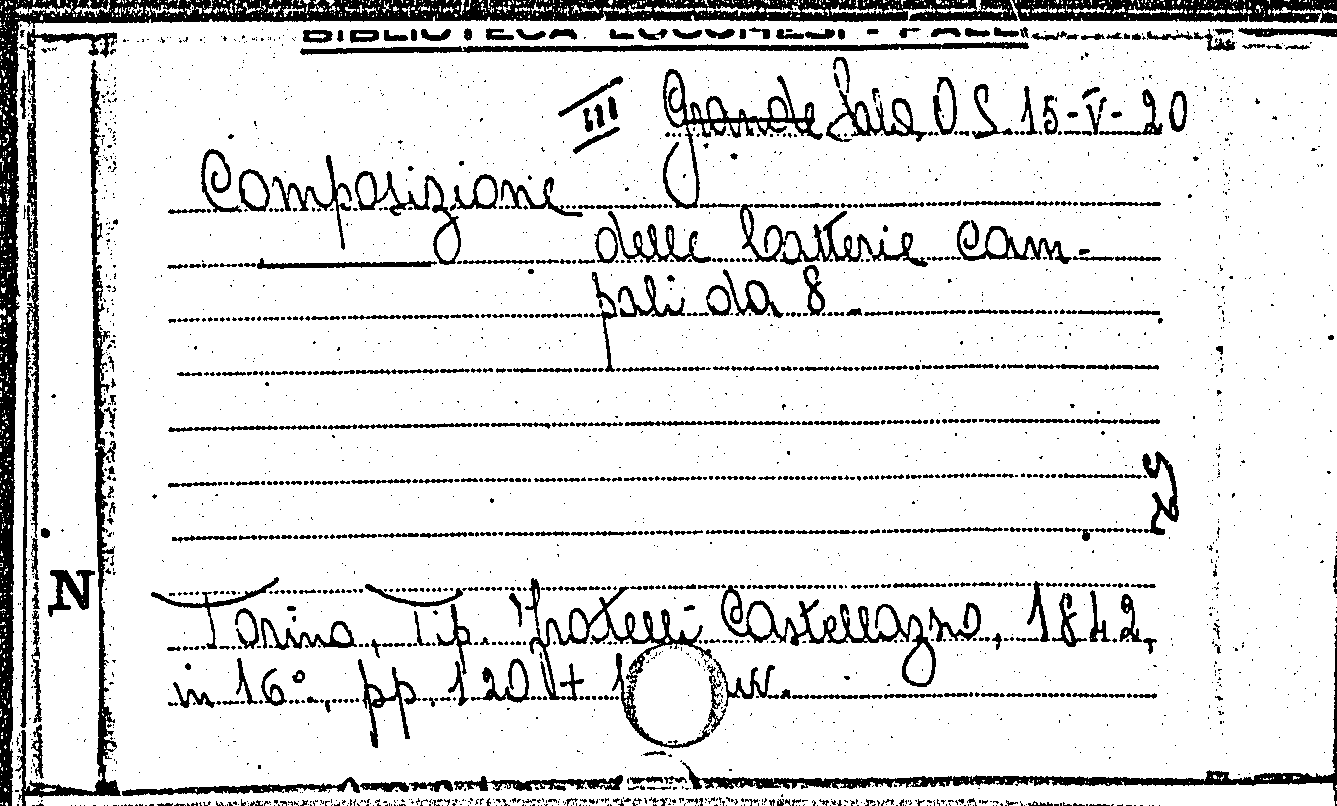 BIBLIOTECA LUCCHESI - PALL
III Grande Sala O S. 15-V-20
Composizione
delle batterie cam-
pali da 8.
N
Torino, Tip. Fratelli Castellazzo, 1842,
in 16°, pp. 120